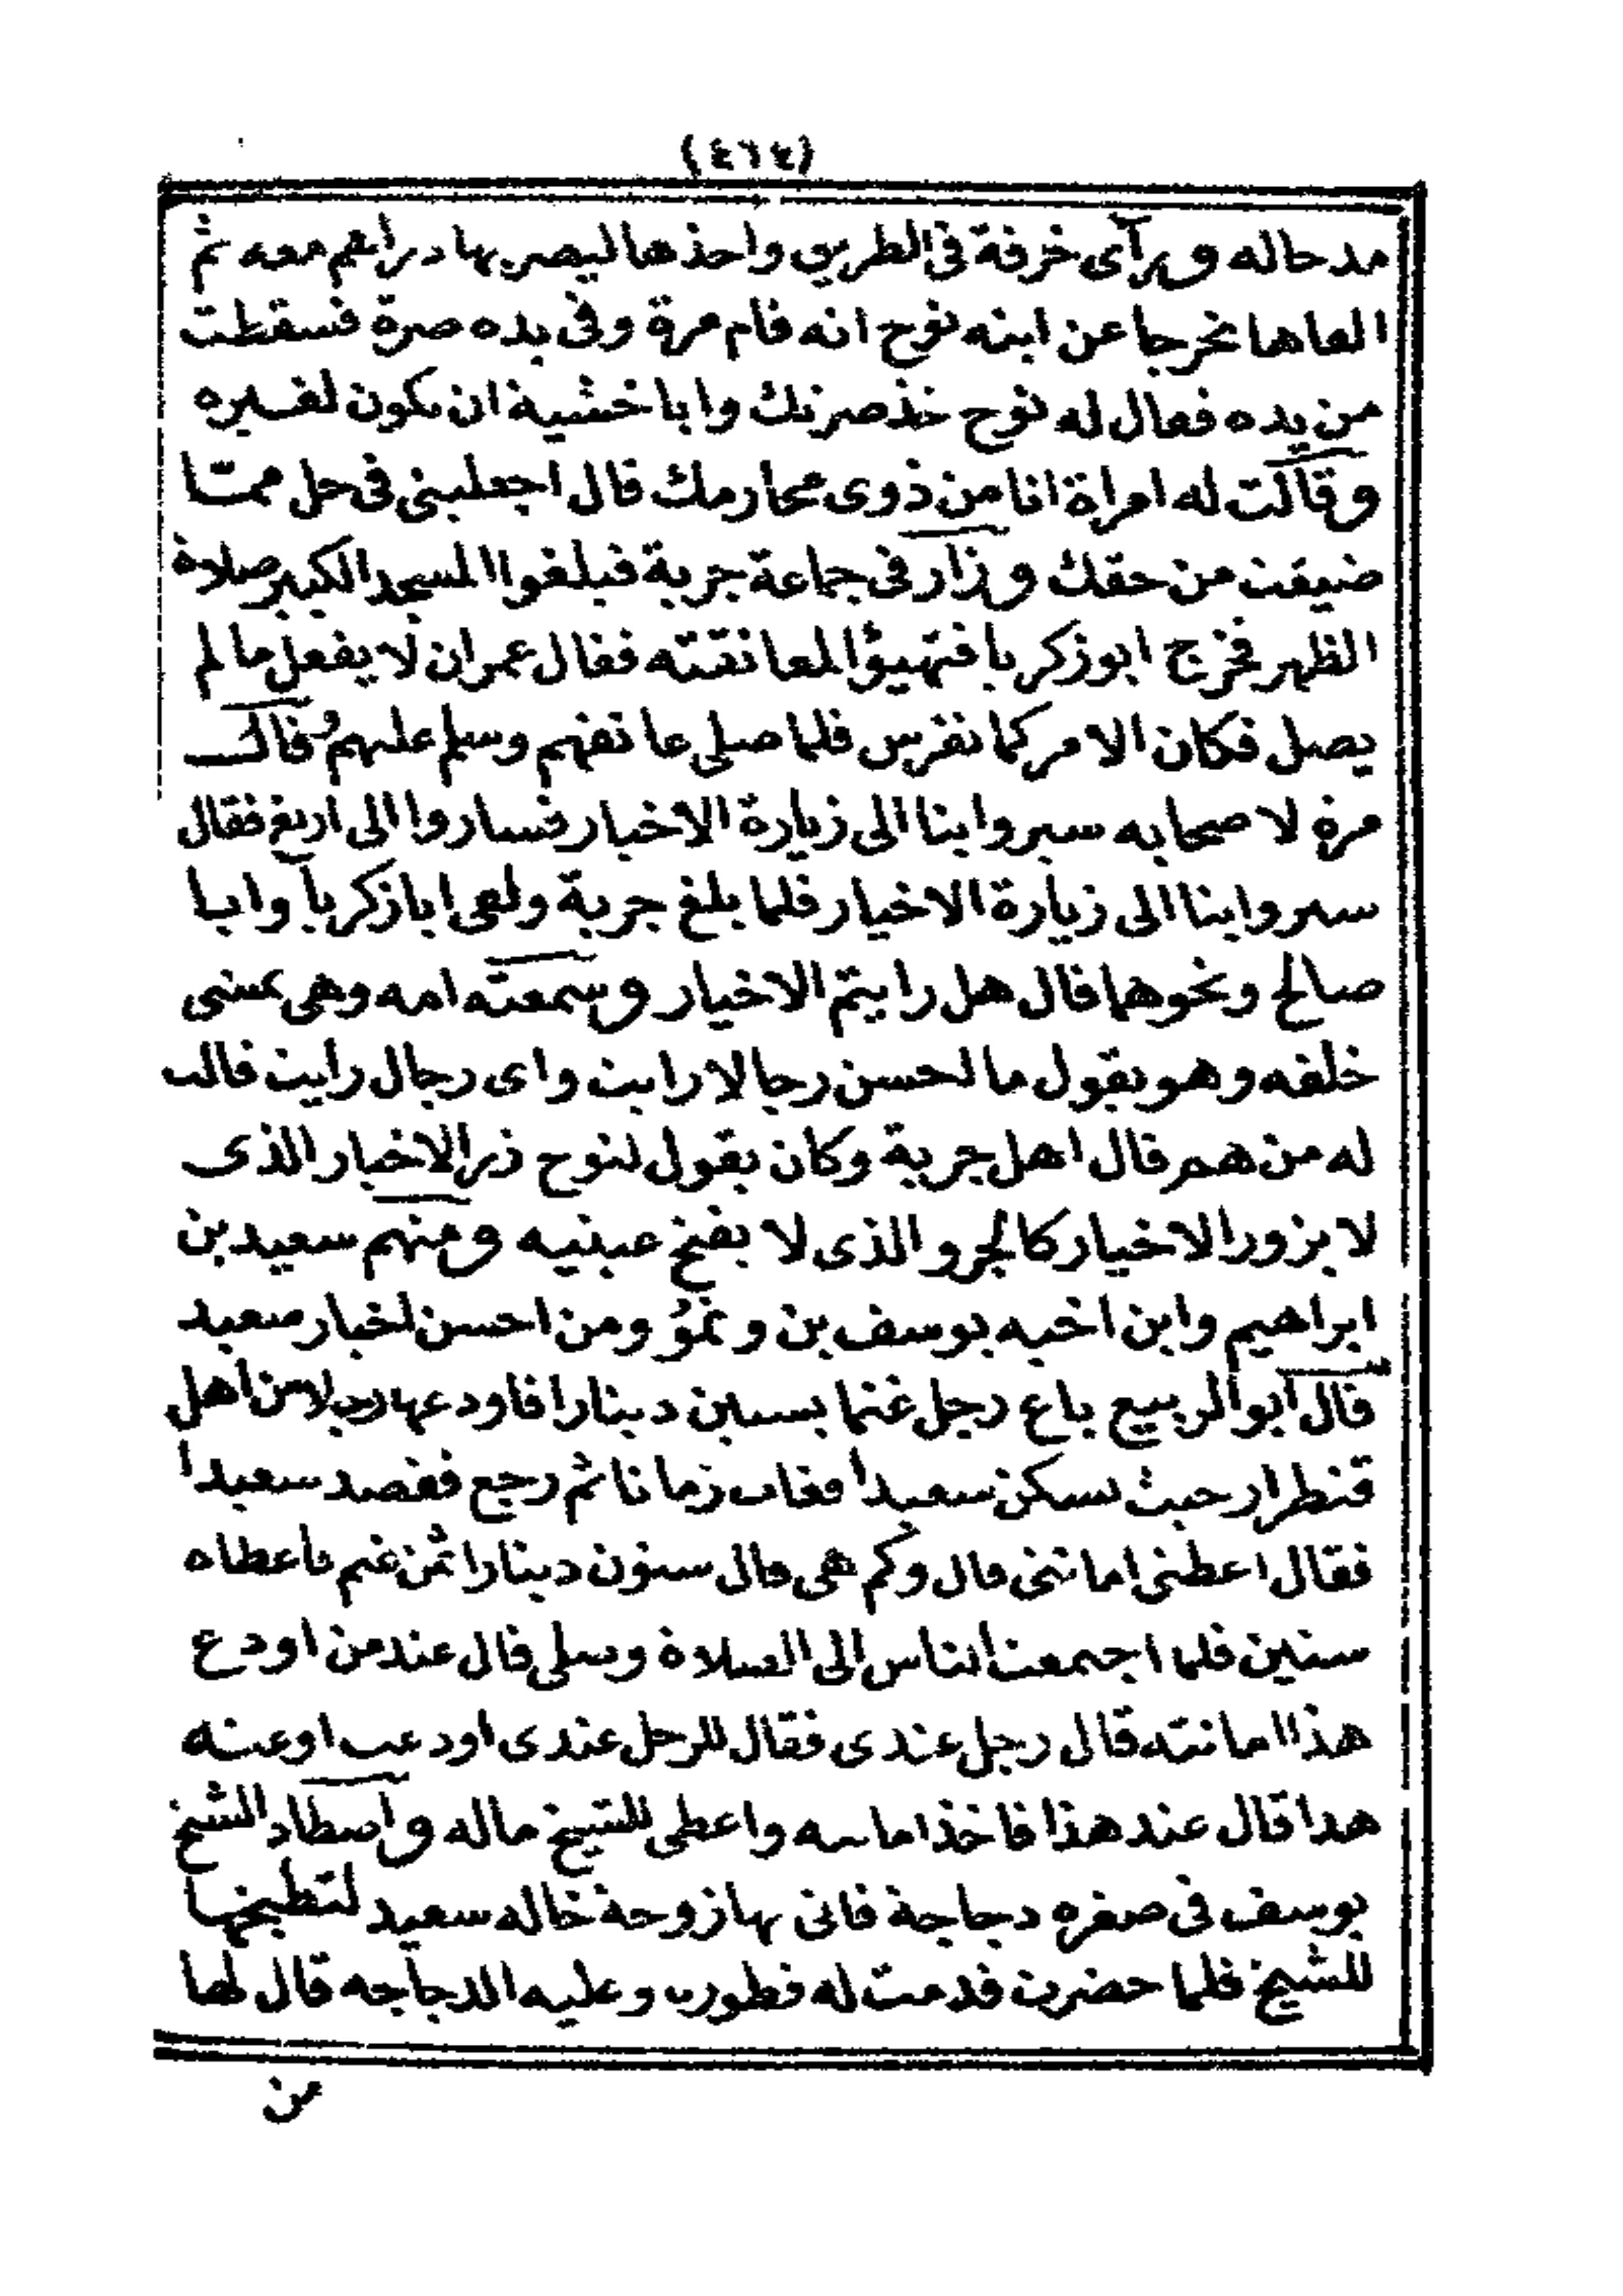 (٤٦٤)
مد حاله ورآى خرقة فى الطريق واخذها ليصر بها دراهم معه ثم
القاها تحرجا عن ابنه نوح انه قام مرة وفى يده صرة فسقطت
من يده فقال له نوح خذ صرتك وابا خشية ان تكون لغيره
وقالت له امراة انا من ذوى محارمك قال اجعلينى فى حل مما
ضيعت من حقك وزار فى جماعة جربة فبلغوا المسجد الكبير صلاة
الظهر فخرج ابو زكريا فتهيؤا لمعانقته فقال عمران لا يفعل ما لم
يصل فكان الامر كما تفرس فلما صلى عانقهم وسلم عليهم وقال
مرة لاصحابه سيروا بنا الى زيارة الاخيار فساروا الى اريغ فقال
سيروا بنا الى زيارة الاخيار فلما بلغ جربة ولقى ابا زكريا وابا
صالح ونحوهما قال هل رايتم الاخيار وسمعته امه وهى تمشى
خلفه وهو يقول ما احسن رجالا رايت واى رجال رايت قالت
له من هم قال اهل جربة وكان يقول لنوح زر الاخيار الذى
لا يزور الاخيار كالجرو الذى لا يفتح عينيه ومنهم سعيد بن
ابراهيم وابن اخيه يوسف بن ونمؤ ومن احسن اخبار سعيد
قال ابو الربيع باع رجل غنما بستين دينارا فاودعها رجلا من اهل
قنطرار حيث يسكن سعيدا فغاب زمانا ثم رجع فقصد سعيدا
فقال اعطنى امانتى قال وكم هى قال ستون دينارا ثمن غنم فاعطاه
ستين فلما اجتمعت الناس الى الصلاة وصلى قال عند من اودع
هذا امانته قال رجل عندى فقال للرجل عندى اودعت او عند
هذا قال عند هذا فاخذ امانته واعطى للشيخ ماله واصطاد الشيخ
يوسف فى صغره دجاجة فاتى بها زوجة خاله سعيد لتطبخها
للشيخ فلما حضرت قدمت له فطوره وعليه الدجاجه قال لها
من